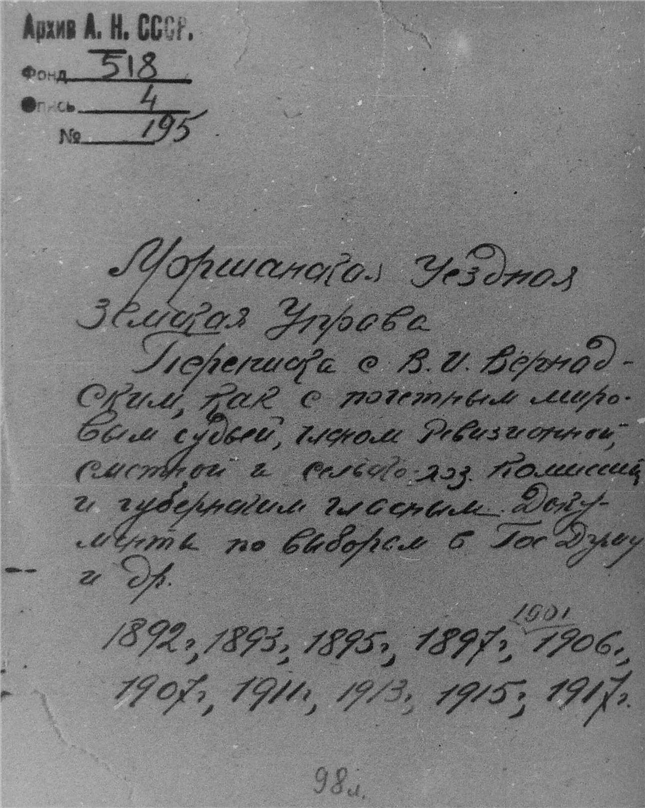 Архив А. Н. СССР.
Фонд 518
Опись 4
№ 195
Моршанская Уездная
Земская Управа
Переписка с В. И. Вернад-
ским, как с почетным миро-
вым судьей, членом Ревизионной,
сметной и сельско-хоз. комиссий
и губернским гласным. Доку-
менты по выборам в Гос Думу
и др.
1901
1892г, 1893г, 1895г, 1897г, 1906г.,
1907г, 1911г, 1913г, 1915г, 1917г.
98л.